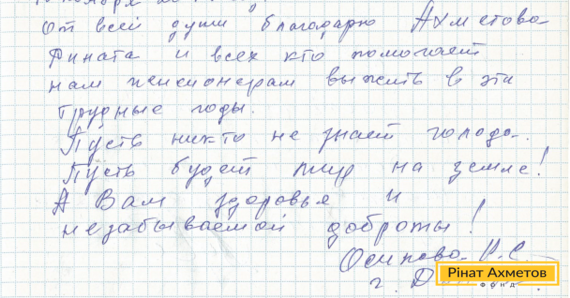 От всей души благодарю Ахметова
Рината и всех кто помогает
нам пенсионерам выжить в эти
трудные годы.
Пусть никто не знает голода.
Пусть будет мир на земле!
А Вам здоровья и
незабываемой доброты!
Осипова Р.С.
г.
Рінат Ахметов
ФОНД